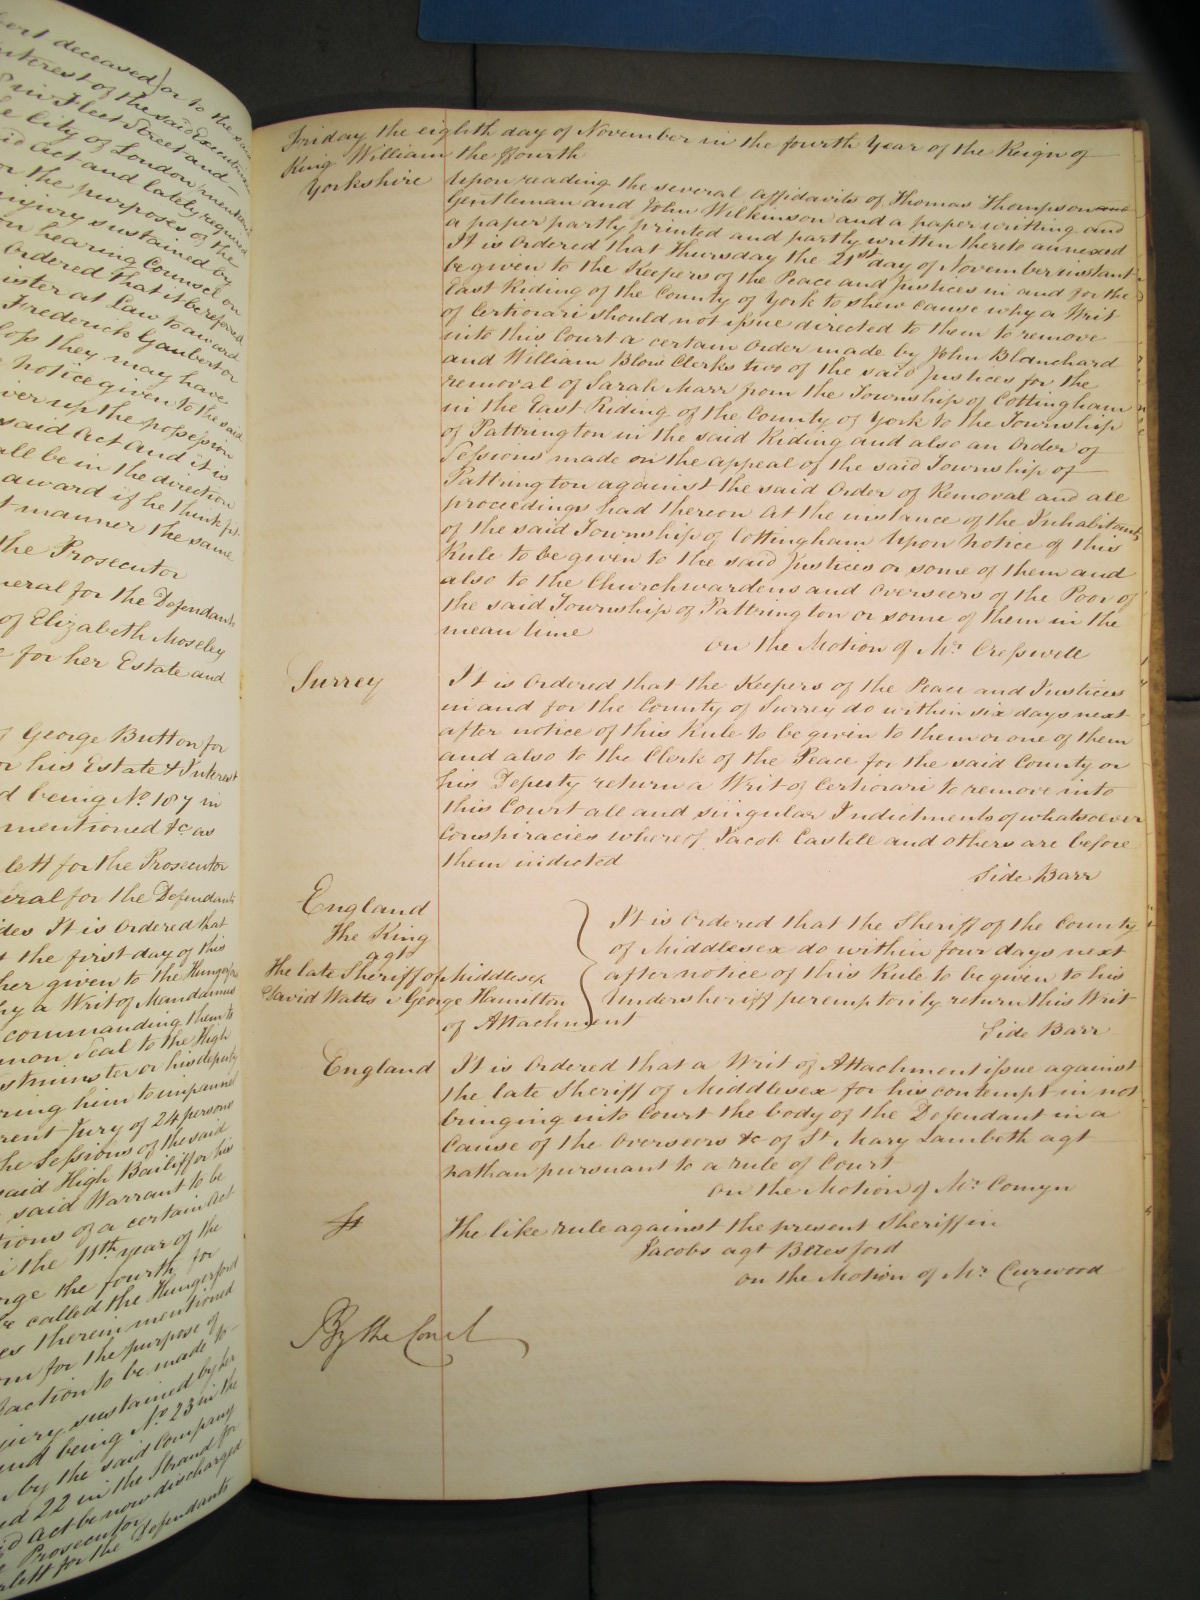 bert deceased or to the said
Interest of the said Executrix
E in Fleet Street and
he City of London mentioned
aid Act and lately required
or the purposes of the
injury sustained by
on hearing Counsel on
Ordered that it be referred
ister at Law to award
Frederick Gaubert or
loss they may have
notice given to the said
iver up the possession
said Act And it is
all be in the direction
award if he think fit
t manner the same
the Prosecutor
neral for the Defendants
of Elizabeth Moseley
for her Estate and
George Button for
or his Estate & Interest
d being No. 107 in
mentioned &c as
lett for the Prosecutor
eral for the Defendants
des It is Ordered that
t the first day of this
her given to the Hungerford
hy a Writ of Mandamus
commanding them to
mon Seal to the High
stminster or his deputy
ring him to impannel
rent Jury of 24 persons
he Sessions of the said
said High Bailiff or his
said Warrant to be
tions of a certain Act
i the 11th year of the
rge the fourth for
e called the Hungerford
es therein mentioned
om for the purpose of
faction to be made to
jury sustained by her
und being No. 23 in the
by the said Company
nd 22 in the Strand for
id Act be now discharged
Prosecutor
rlett for the Defendants
Friday the eighth day of November in the fourth Year of the Reign of
King William the Fourth
Yorkshire Upon reading the several affidavits of Thomas Thompson
Gentleman and John Wilkinson and a paper writing and
a paper partly printed and partly written thereto annexed
It is Ordered that Thursday the 21st day of November instant
be given to the Keepers of the Peace and Justices in and for the
East Riding of the County of York to shew cause why a Writ
of Certiorari should not issue directed to them to remove
into this Court a certain Order made by John Blanchard
and William Blow Clerks two of the said Justices for the
removal of Sarah Marr from the Township of Cottingham
in the East Riding of the County of York to the Township
of Pattrington in the said Riding and also an Order of
Sessions made on the appeal of the said Township of
Pattrington against the said Order of Removal and all
proceedings had thereon At the instance of the Inhabitants
of the said Township of Cottingham Upon notice of this
Rule to be given to the said Justices or some of them and
also to the Churchwardens and Overseers of the Poor of
the said Township of Pattrington or some of them in the
mean time
On the Motion of Mr. Cresswell
Surrey It is Ordered that the Keepers of the Peace and Justices
in and for the County of Surrey do within six days next
after notice of this Rule to be given to them or one of them
and also to the Clerk of the Peace for the said County or
his Deputy return a Writ of Certiorari to remove into
this Court all and singular Indictments of whatsoever
Conspiracies whereof Jacob Castell and others are before
them indicted
Side Barr
England
The King
agt
The late Sheriff of Middlesex
David Watts v George Hamilton
It is Ordered that the Sheriff of the County
of Middlesex do within four days next
after notice of this Rule to be given to his
Undersheriff peremptorily return this Writ
of Attachment
Side Barr
England It is Ordered that a Writ of Attachment issue against
the late Sheriff of Middlesex for his contempt in not
bringing into Court the body of the Defendant in a
Cause of the Overseers &c of St Mary Lambeth agt
Nathan pursuant to a rule of Court
On the Motion of Mr. Comyn
The like rule against the present Sheriff in
Jacobs agt Beresford
on the Motion of Mr. Curwood
By the Court